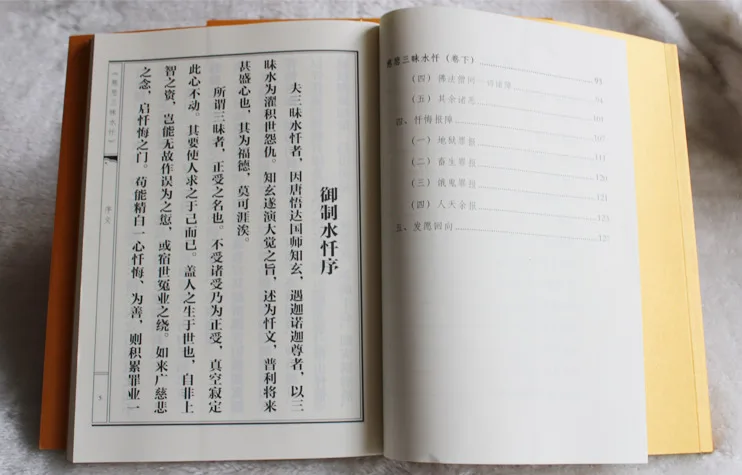 慈悲三昧水忏（卷下）……93
（四）佛法僧间一切诸障……94
（五）其余诸恶……101
四、忏悔报障……102
（一）地狱罪报……111
（二）畜生罪报……120
（三）饿鬼罪报……121
（四）人天余报……123
五、发愿回向……127
御制水忏序
夫三昧水忏者，因唐悟达国师知玄，遇迦诺迦尊者，以三
昧水为濯积世怨仇。知玄遂演大觉之旨，述为忏文，普利将来
甚盛心也，其为福德，莫可涯涘。
所谓三昧者，正受之名也。不受诸受乃为正受，真空寂定
此心不动。其要使人求之于己而已。盖人之生于世也，自非上
智之资，岂能无故作误为之愆，或宿世冤业之绕。如来广慈悲
之念，启忏悔之门。苟能精白一心忏悔、为善，则积累罪业一
《慈悲三昧水忏》
序文
5